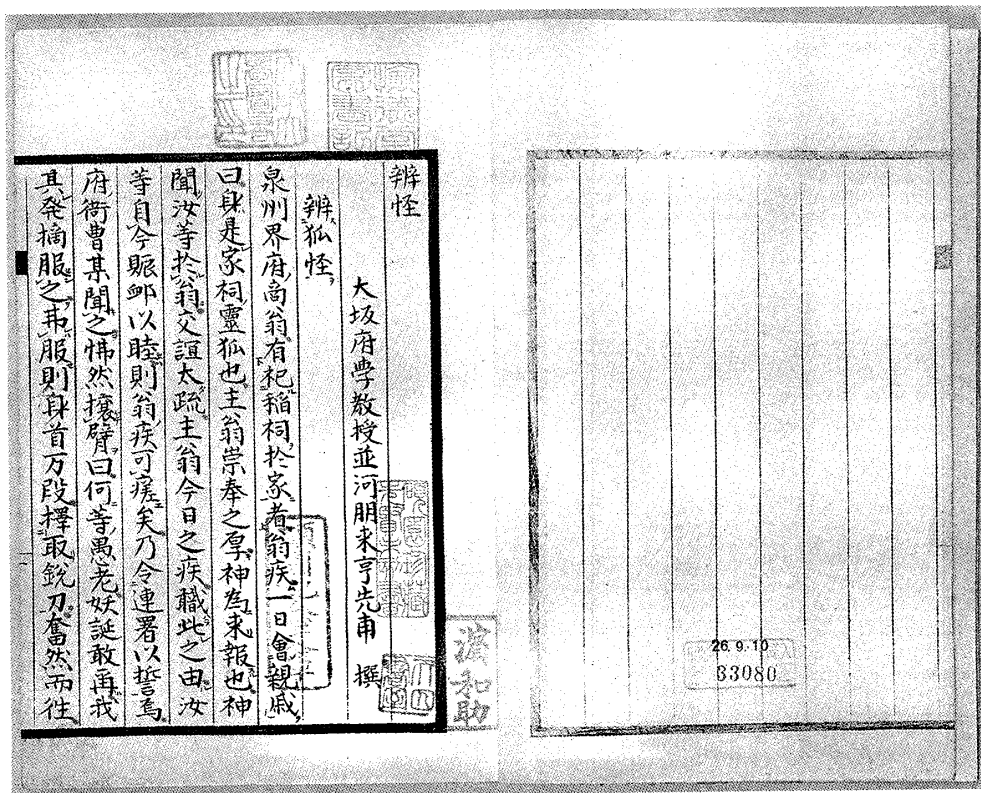 辨怪
大坂府學教授並河朋来亨先甫 撰
辨狐怪
泉州界府商翁有祀稲祠於家者翁疾一日會親戚
曰身是家祠靈狐也主翁崇奉之厚神為来報也神
聞汝等於翁交誼太疏主翁今日之疾職此之由汝
等自今賑卹以睦則翁疾可瘥矣乃令連署以誓焉
府衙曹某聞之怫然攘臂曰何等愚老妖誕敢再我
其発摘服之弗服則身首万段擇取銳刀奮然而往
濵和助
26.9.10
33080